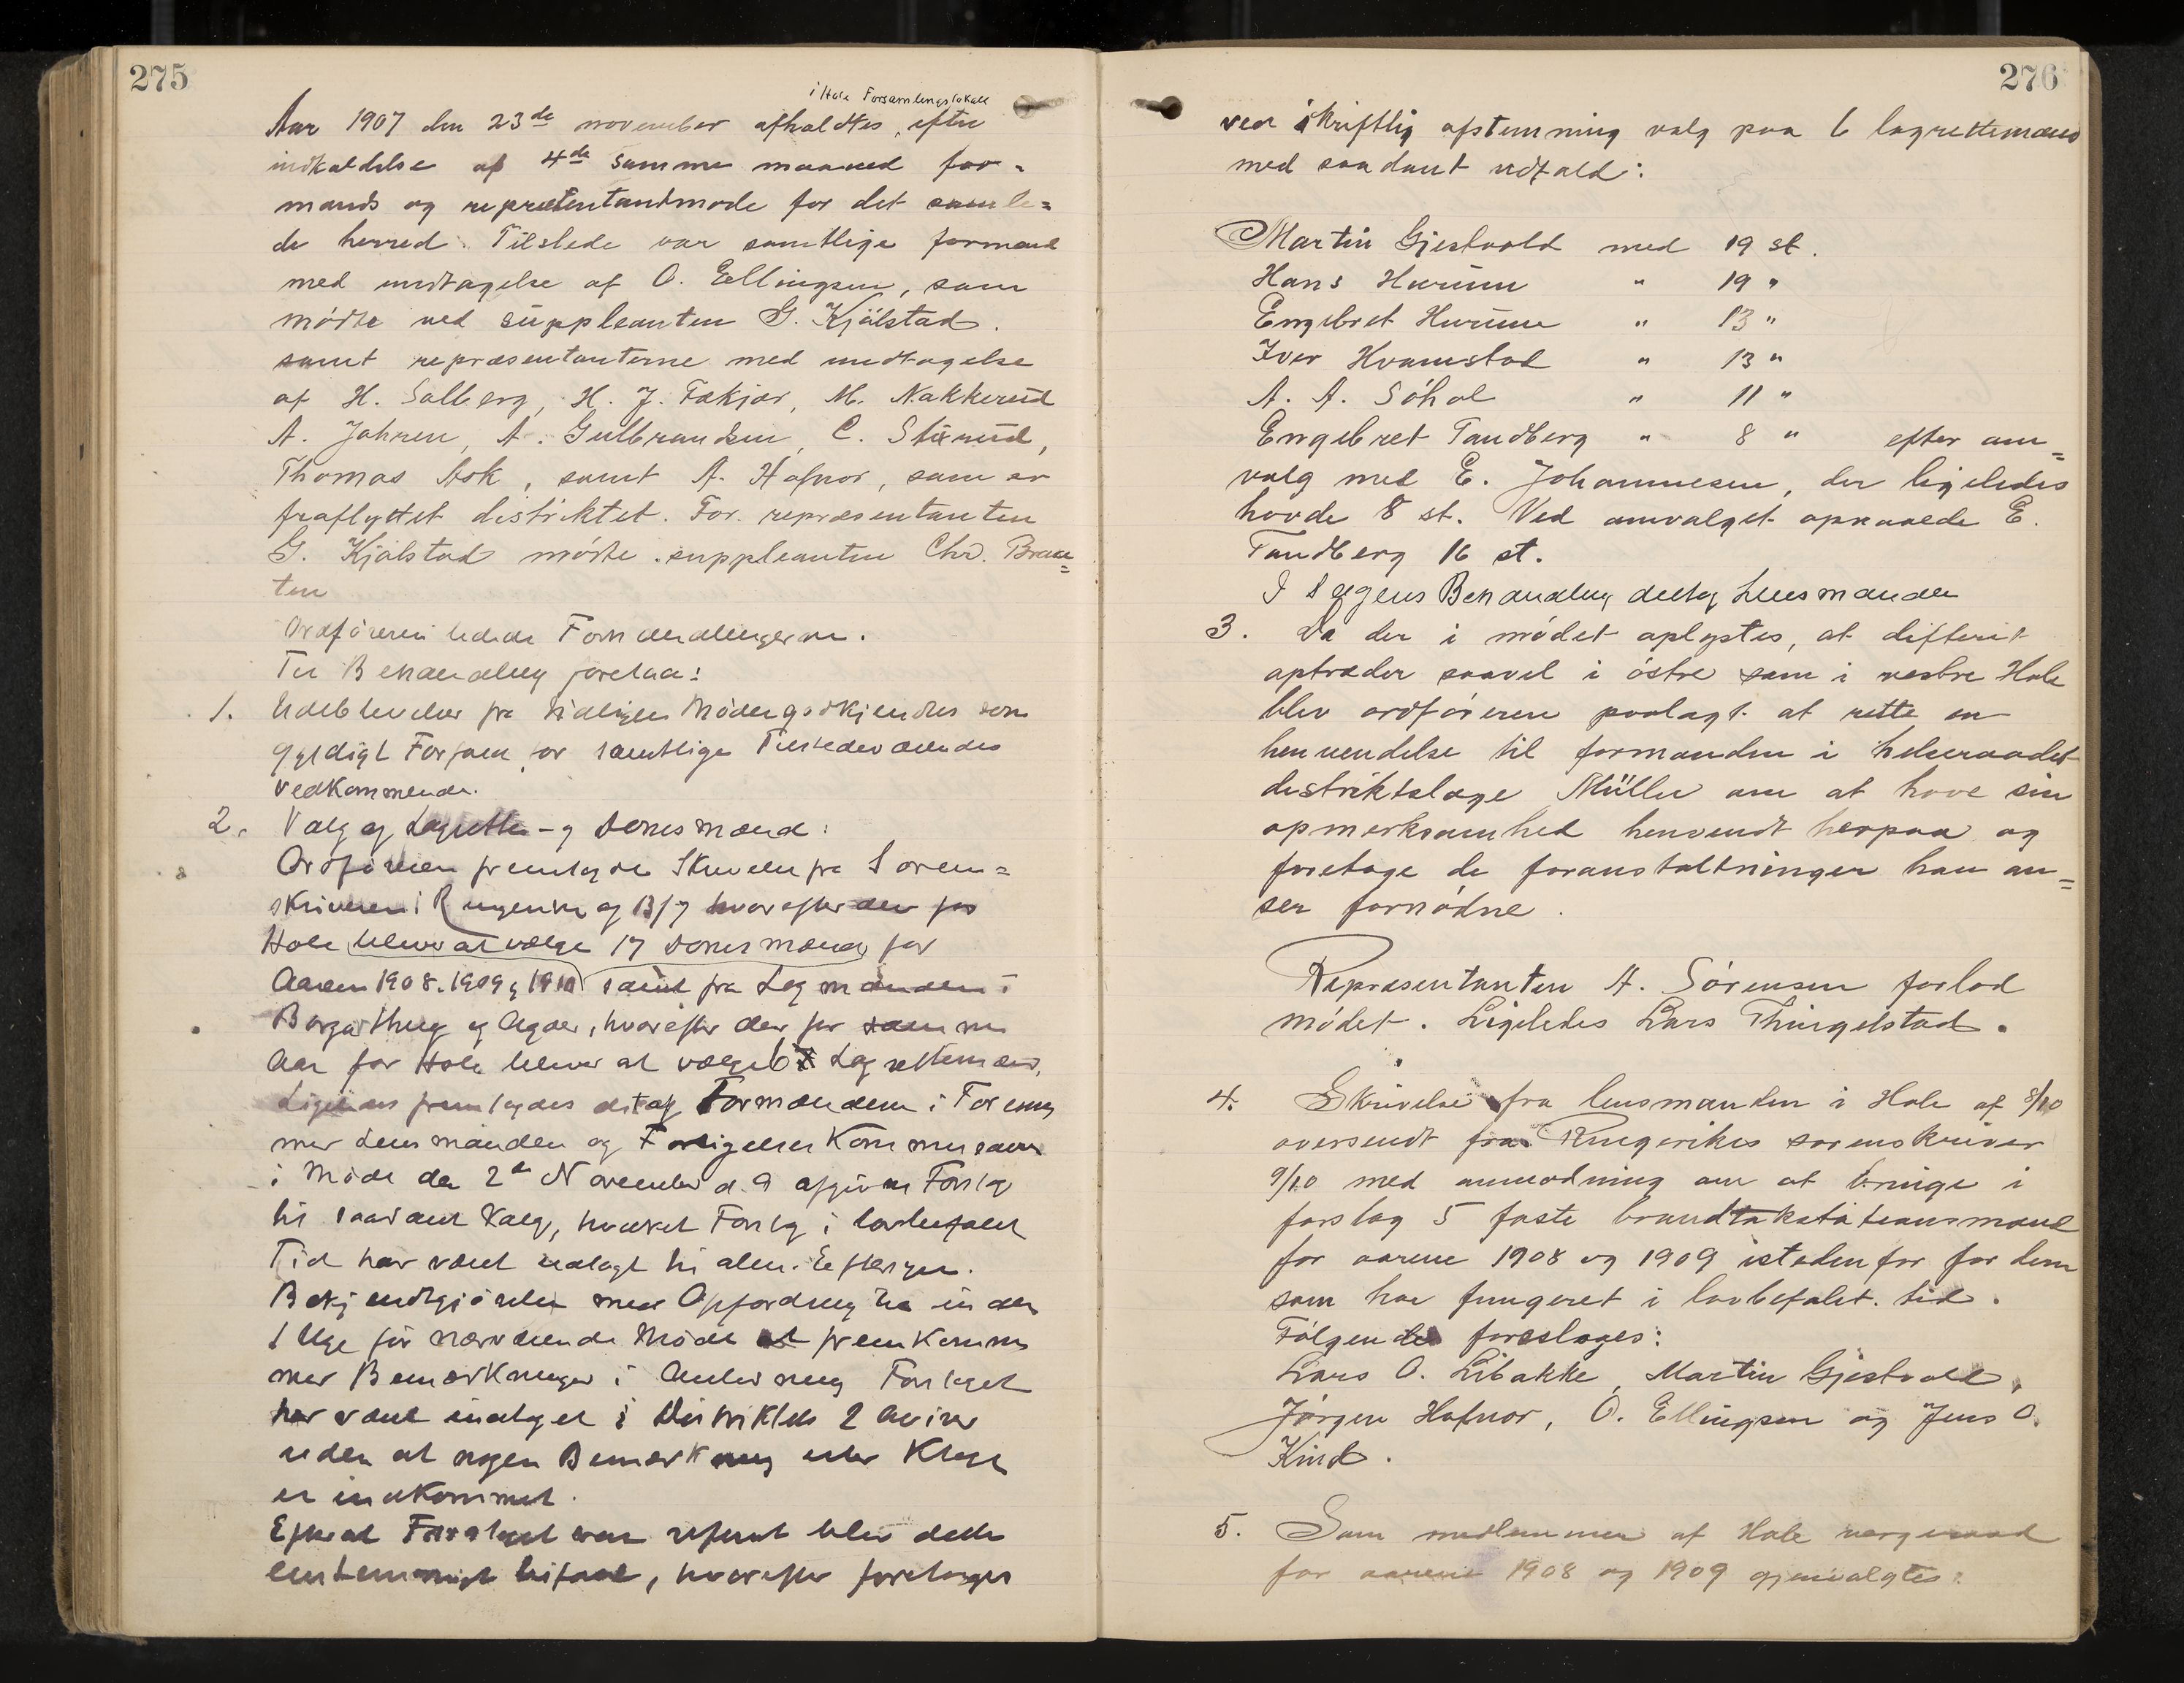 275
i Hole Forsamlingslokale
Aar 1907 den 23de november afholdtes efter
indkaldelse af 4de samme maaned for-
mands og repræsentantmøde for det samle=
de herred. Tilstede var samtlige formænd
med undtagelse af O. Ellingsen, som
mødte ved suppleanten G. Kjølstad.
samt repræsentanterne med undtagelse
af H. Solberg, H. J. Fækjær, M. Nakkerud
A. Jahren, A. Gulbrandsen, C. Stixrud,
Thomas Ask, samt A. Hafnor, som er
fraflyttet distriktet. For repræsentanten
G. Kjølstad mødte suppleanten Chr. Braa=
ten
Ordføreren ledede Forhandlingerne.
Til Behandling forelaa:
1. Udeblivelser fra tidligere Møder godkjendtes som
gyldigt Forfald for samtlige Tilstedeværendes
Vedkommende.
2. Valg af Lagrette- og Domsmænd:
Ordføreren fremlagde Skrivelse fra Soren=
skriveren i Ringerike af 13/7 hvorefter der for
Hole bliver at vælge 17 Domsmænd for
Aarene 1908. 1909 & 1910 samt fra Lagmanden i
Borgarthing og Agder, hvorefter der for samme
Aar for Hole bliver at vælge 6 Lagrettemænd.
Ligeledes fremlagdes det af Formændene i Forening
med Lensmanden og Forligelseskommissærer
i Møde den 2de November d. A afgivne Forslag
til saadant Valg, hvilket Forslag i lovbefalet
Tid har været udlagt til alm. Eftersyn.
Bekjendtgjørelse med Opfordring til inden
1 Uge før nærværende Møde at fremkomme
med Bemærkninger i Anledning Forslaget
har været indtaget i Distriktets 2 Aviser
uden at nogen Bemærkning eller Klage
er indkommet.
Efterat Forslaget var referert blev dette
enstemmigt bifaldt, hvorefter foretoges
276
ved skriftlig afstemning valg paa 6 lagrettemænd
med saadant udfald:
Martin Gjestvold med 19 st.
Hans Hurum " 19 "
Engebret Hurum " 13 "
Iver Hvamstad " 13 "
A. A. Søhol " 11 "
Engebret Tandberg " 8 " efter om=
valg med E. Johannesen, der ligeledes
havde 8 st. Ved omvalget opnaaede E.
Tandberg 16 st.
I Sagens Behandling deltog Lensmanden
3. Da der i mødet oplystes, at difterit
optræder saavel i østre som i vestre Hole
blev ordføreren paalagt at rette en
henvendelse til formanden i helseraadet
distriktslæge Müller om at have sin
opmerksomhed henvendt herpaa og
foretage de foranstaltninger han an=
ser fornødne.
Repræsentanten A. Sørensen forlod
mødet. Ligeledes Lars Thingelstad.
4. Skrivelse fra lensmanden i Hole af 8/10
oversendt fra Ringerikes sorenskriver
9/10 med anmodning om at bringe i
forslag 5 faste brandtakstationsmænd
for aarene 1908 og 1909 istedenfor for dem
som har fungeret i lovbefalet tid.
Følgende foresloges:
Lars O. Libakke, Martin Gjestvold,
Jørgen Hafnor, O. Ellingsen og Jens O.
Kind.
5. Som medlemmer af Hole vergeraad
for aarene 1908 og 1909 gjenvalgtes: